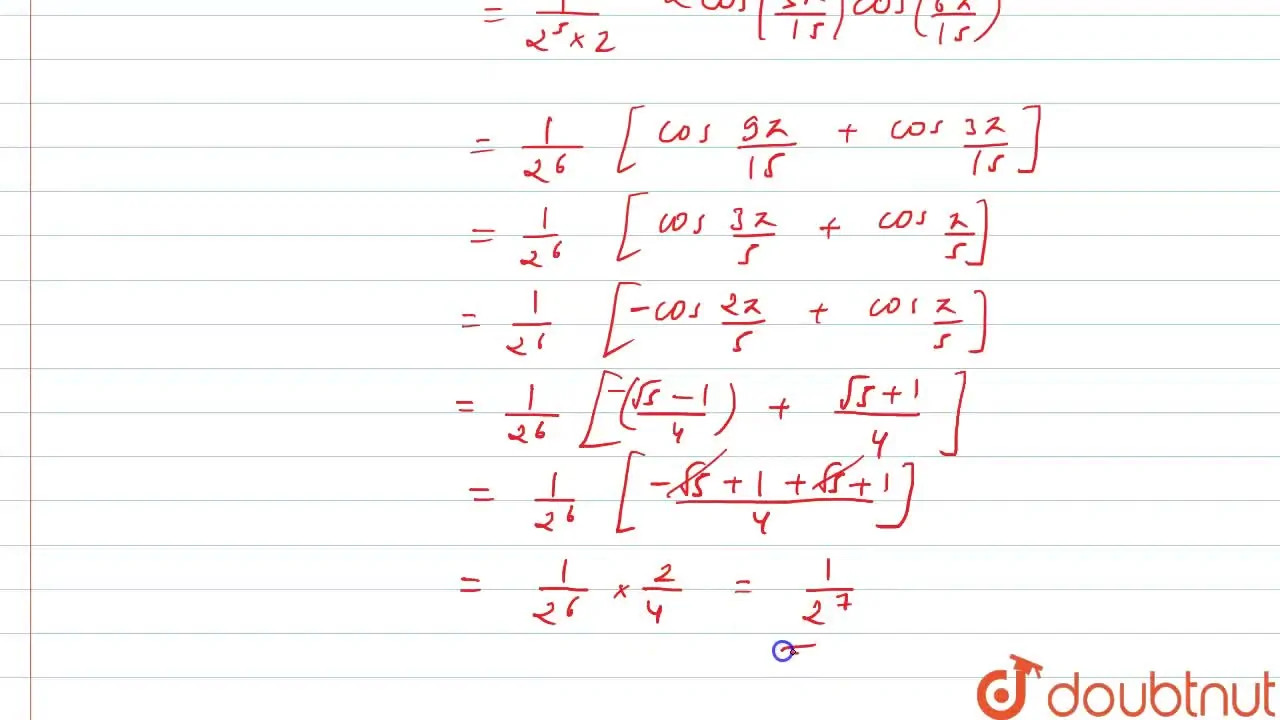 = 1/(2^5 × 2) 2 cos(3π/15) cos(6π/15)
= 1/2^6 [cos 9π/15 + cos 3π/15]
= 1/2^6 [cos 3π/5 + cos π/5]
= 1/2^6 [-cos 2π/5 + cos π/5]
= 1/2^6 [-(√5 - 1)/4 + (√5 + 1)/4]
= 1/2^6 [(-√5 + 1 + √5 + 1)/4]
= 1/2^6 × 2/4 = 1/2^7
doubtnut